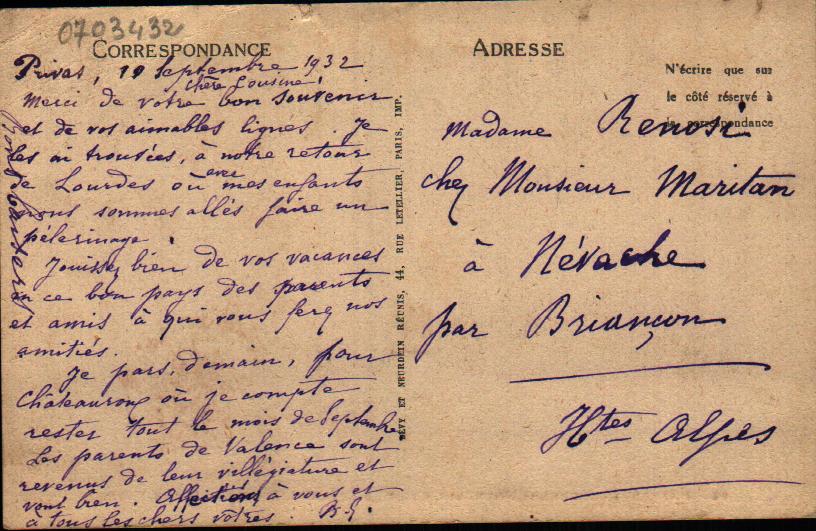 0703432
CORRESPONDANCE
Privas, 10 Septembre 1932
chère Cousine!
Merci de votre bon souvenir
et de vos aimables lignes. Je
les ai trouvées, à notre retour
de Lourdes où avec mes enfants
nous sommes allés faire un
pélerinage.
Jouissez bien de vos vacances
en ce bon pays des parents
et amis à qui vous ferez nos
amitiés.
Je pars, demain, pour
Châteauroux où je compte
rester tout le mois de Septembre
Les parents de Valence sont
revenus de leur villégiature et
vont bien. à vous et
à tous les chers vôtres.
LÉVY ET NEURDEIN RÉUNIS, 44, RUE LETELLIER, PARIS, IMP.
ADRESSE
N'écrire que sur
le côté réservé à
la correspondance
Madame Renosi
chez Monsieur Maritan
à Névache
par Briançon
Htes Alpes